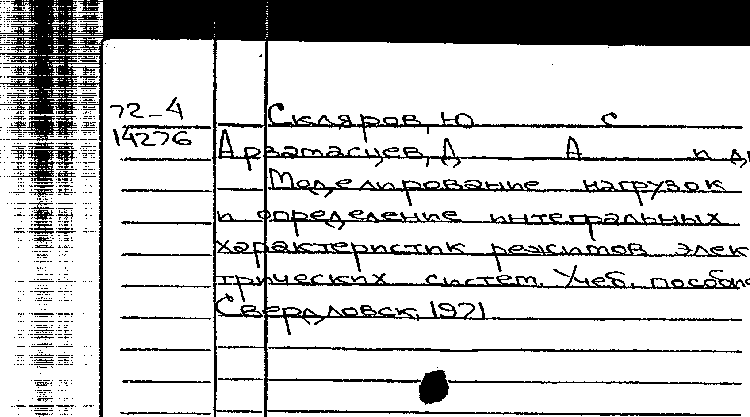 72-4
14276
Скляров, Ю С
Арзамасцев, Д А и др
Моделирование нагрузок
и определение интегральных
характеристик режимов элек
трических систем. Учеб. пособие
Свердловск, 1971